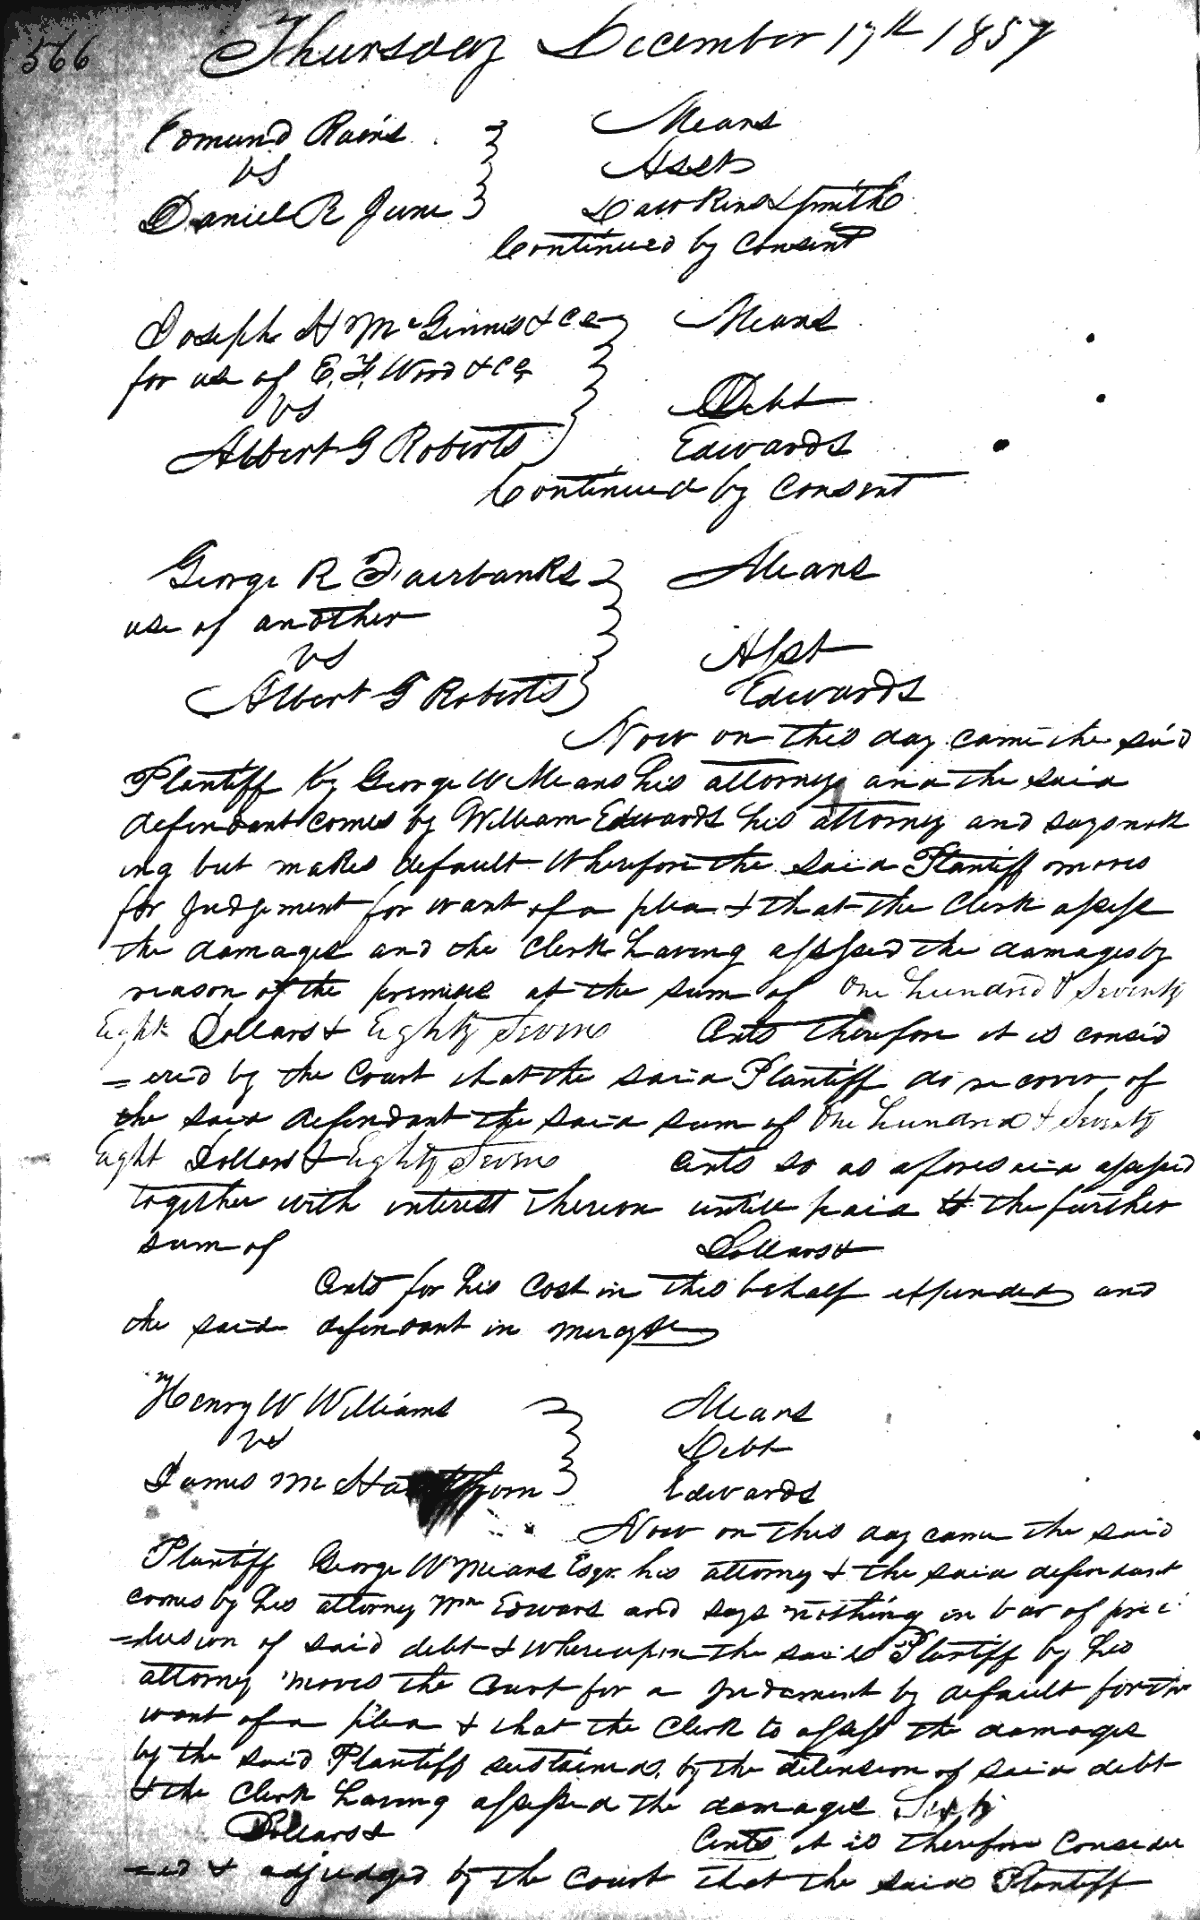 566 Thursday December 17th 1857
Edmund Rains Means
vs Asst
Daniel R June Dawkins & Smith
Continued by Consent
Joseph H McGinnis & Co Means
for use of E. F. Wood & Co
vs Debt
Albert G Roberts Edwards
Continued by Consent
George R Fairbanks Means
use of another
vs Asst
Albert G Roberts Edwards
Now on this day came the said
Plantiff by George W Means his attorney and the said
defendant comes by William Edwards his attorney and says noth
ing but makes default Wherefore the said Plantiff moves
for Judgement for want of a plea & that the Clerk assess
the damages and the Clerk having assessed the damages by
reason of the premises at the sum of One hundred & Seventy
Eight Dollars & Eighty Seven Cents therefore it is consid
=ered by the Court that the said Plantiff do recover of
the said defendant the said sum of One hundred & Seventy
Eight Dollars & Eighty Seven Cents so as aforesaid assessed
together with interest thereon untill paid & the further
sum of Dollars &
Cents for his Cost in this behalf expended and
the said defendant in mercy &c
Henry W Williams Means
vs Debt
James M Edwards
Now on this day came the said
Plantiff George W Means Esqr his attorney & the said defendant
comes by his attorney Wm Edwars and says nothing in bar of prec
=lusion of said debt & whereupon the said Plantiff by his
attorney moves the Court for a Judement by default for the
want of a plea & that the Clerk to assess the damages
by the said Plantiff sustained by the detension of said debt
& the Clerk having assessed the damages
Dollars & Cents it is therefore Conside
=ed & adjudged by the Court that the said Plantiff